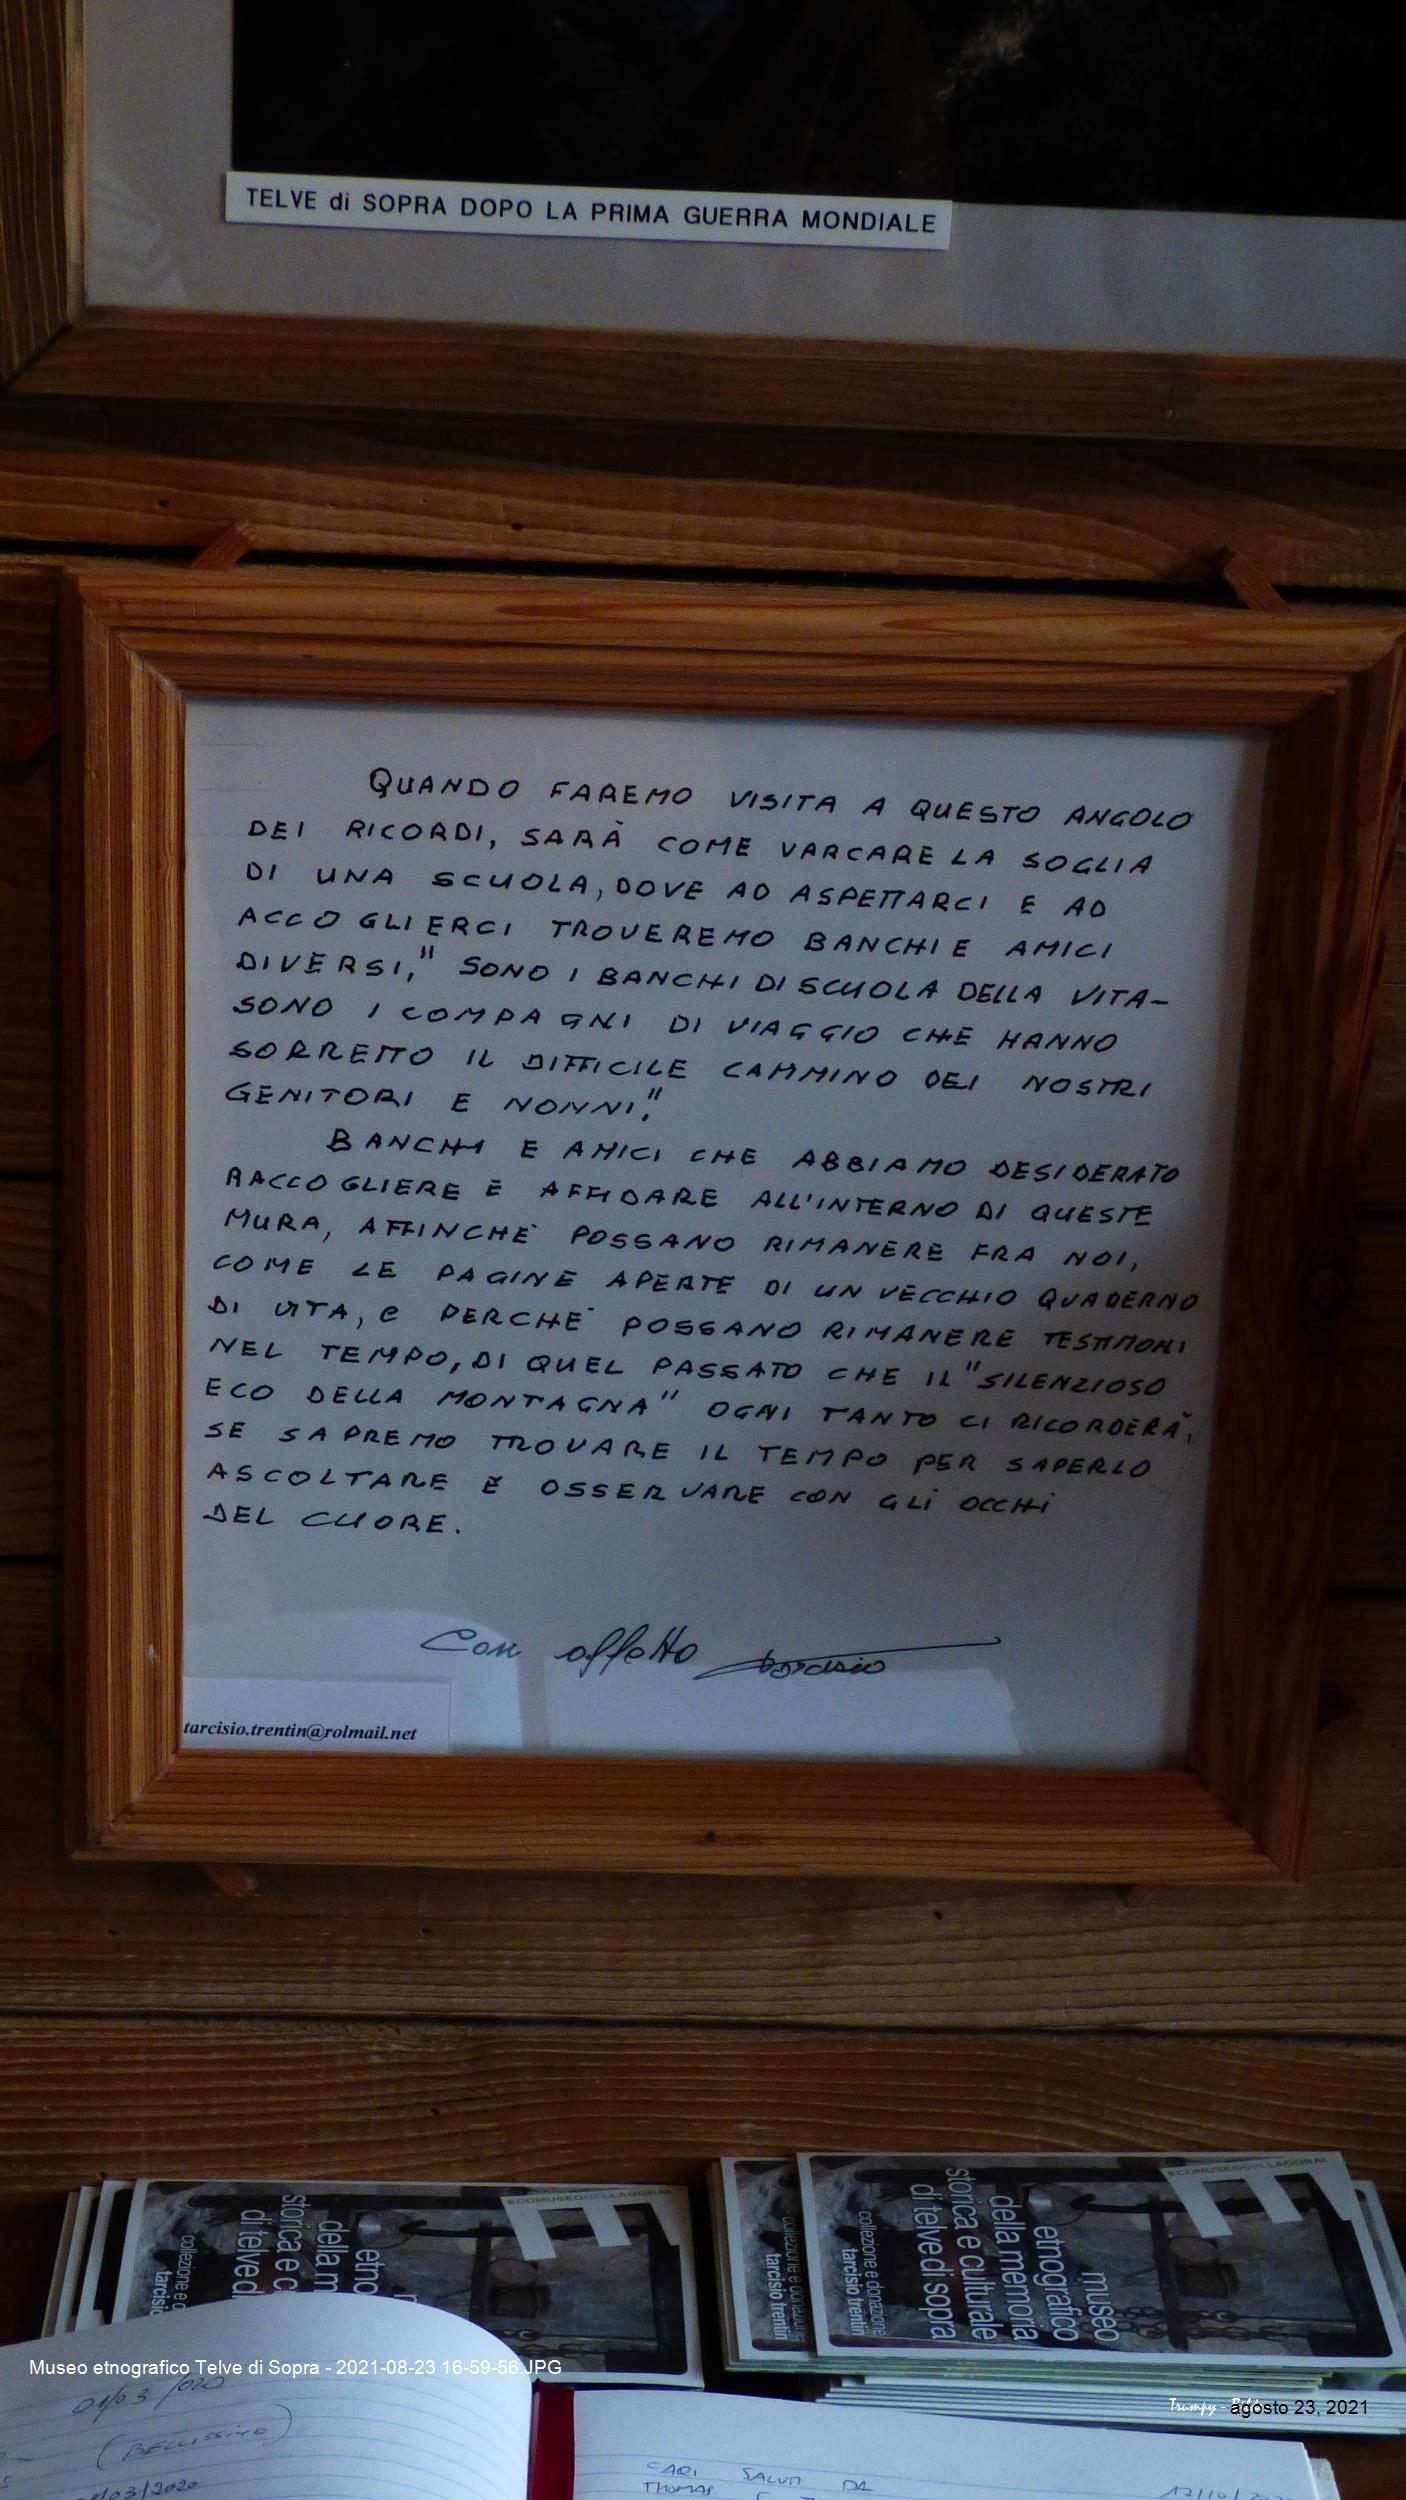 TELVE di SOPRA DOPO LA PRIMA GUERRA MONDIALE
QUANDO FAREMO VISITA A QUESTO ANGOLO
DEI RICORDI, SARÀ COME VARCARE LA SOGLIA
DI UNA SCUOLA, DOVE AD ASPETTARCI E AD
ACCOGLIERCI TROVEREMO BANCHI E AMICI
DIVERSI, " SONO I BANCHI DI SCUOLA DELLA VITA-
SONO I COMPAGNI DI VIAGGIO CHE HANNO
SORRETTO IL DIFFICILE CAMMINO DEI NOSTRI
GENITORI E NONNI."
BANCHI E AMICI CHE ABBIAMO DESIDERATO
RACCOGLIERE E AFFIDARE ALL'INTERNO DI QUESTE
MURA, AFFINCHÈ POSSANO RIMANERE FRA NOI,
COME LE PAGINE APERTE DI UN VECCHIO QUADERNO
DI VITA, e PERCHÈ POSSANO RIMANERE TESTIMONI
NEL TEMPO, DI QUEL PASSATO CHE IL "SILENZIOSO
ECO DELLA MONTAGNA" OGNI TANTO CI RICORDERÀ,
SE SAPREMO TROVARE IL TEMPO PER SAPERLO
ASCOLTARE E OSSERVARE CON GLI OCCHI
DEL CUORE.
Con affetto Tarcisio
tarcisio.trentin@rolmail.net
ECOMUSEODELLAGORAI
etno
della m
storica e c
di telve di
collezione e d
tarcisio
collezione e donazione
tarcisio trentin
ECOMUSEODELLAGORAI
museo
etnografico
della memoria
storica e culturale
di telve di sopra
collezione e donazione
tarcisio trentin
Museo etnografico Telve di Sopra - 2021-08-23 16-59-56.JPG
agosto 23, 2021
01/03/020
(BELLISSIMO)
/03/2020
CARI SALUTI DA
THOMAS E